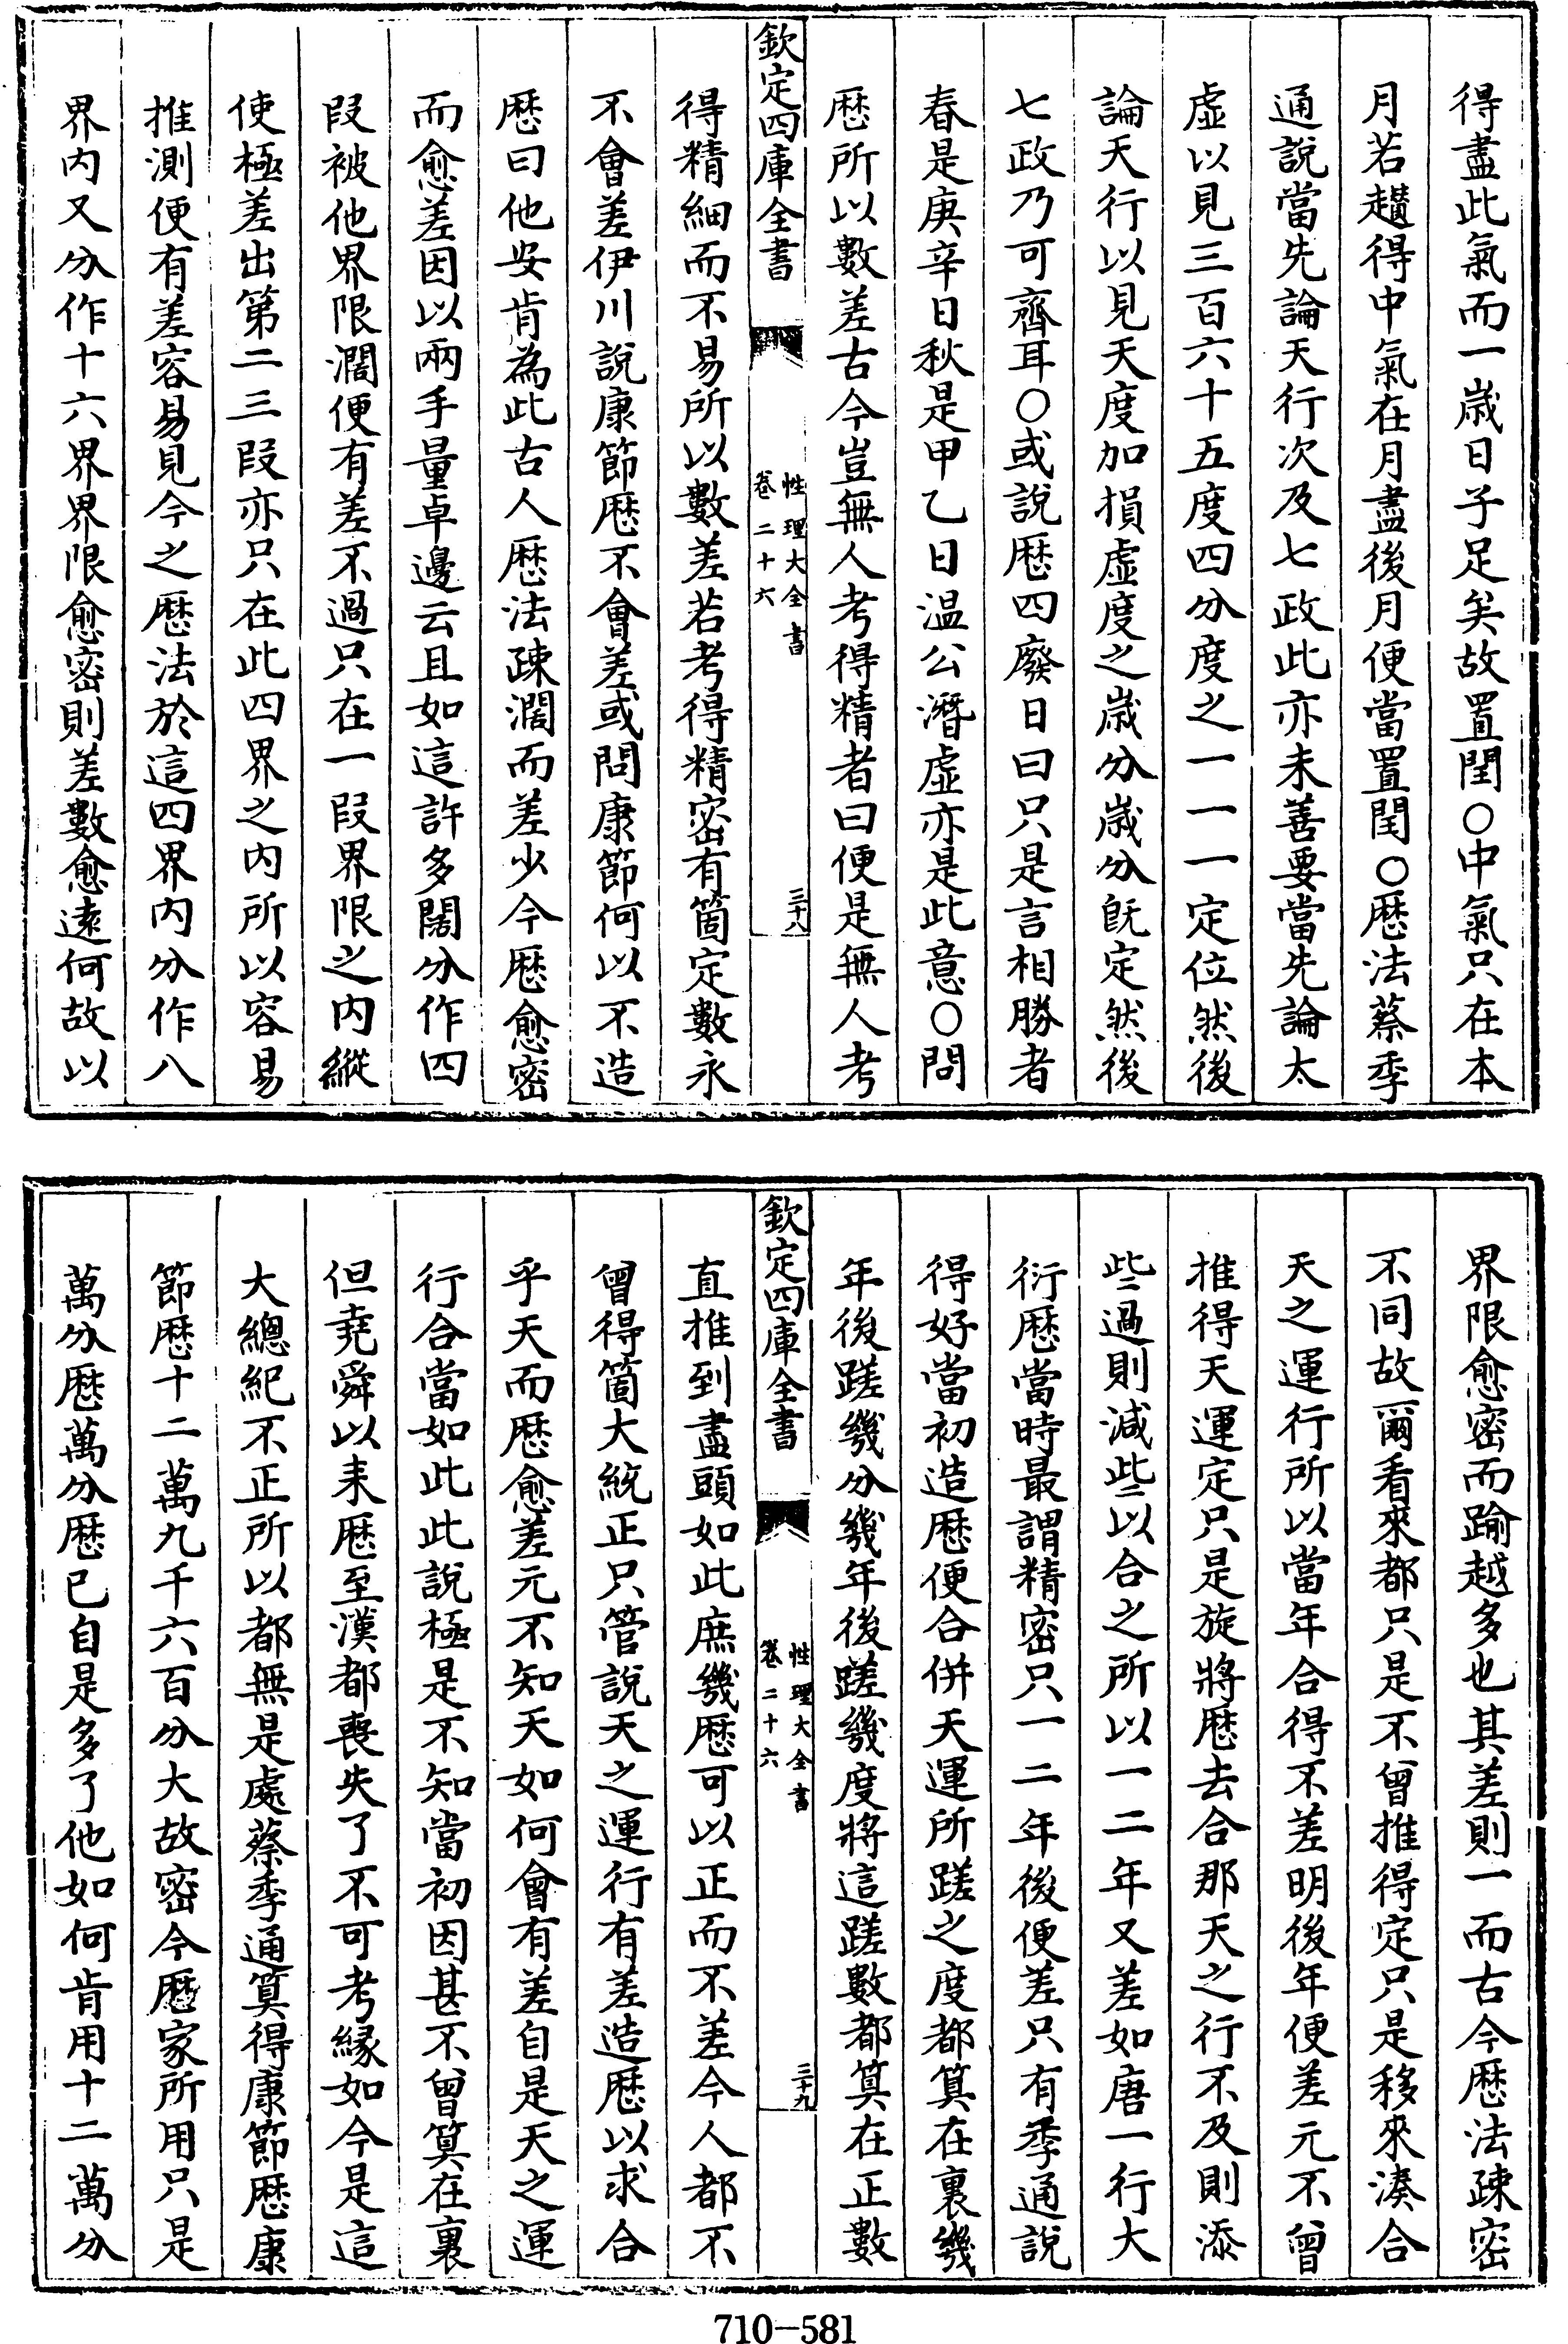 得盡此氣而一嵗日子足矣故置閏○中氣只在本
月若趲得中氣在月盡後月便當置閏○厯法蔡季
通說當先論天行次及七政此亦未善要當先論太
虛以見三百六十五度四分度之一一一定位然後
論天行以見天度加損虛度之嵗分嵗分旣定然後
七政乃可齊耳○或說厯四廢日曰只是言相勝者
春是庚辛日秋是甲乙日温公潛虛亦是此意○問
厯所以數差古今豈無人考得精者曰便是無人考
欽定四庫全書
性理大全書
卷二十六
三十八
得精細而不易所以數差若考得精密有箇定數永
不會差伊川說康節厯不會差或問康節何以不造
厯曰他安肯為此古人厯法疎濶而差少今厯愈密
而愈差因以兩手量卓邊云且如這許多闊分作四
段被他界限濶便有差不過只在一段界限之内縱
使極差出第二三段亦只在此四界之内所以容易
推測便有差容易見今之厯法於這四界内分作八
界内又分作十六界界限愈密則差數愈逺何故以
界限愈密而踰越多也其差則一而古今厯法疎密
不同故爾看來都只是不曾推得定只是移來湊合
天之運行所以當年合得不差明後年便差元不曾
推得天運定只是旋將厯去合那天之行不及則添
些過則減些以合之所以一二年又差如唐一行大
衍厯當時最謂精密只一二年後便差只有季通說
得好當初造厯便合併天運所蹉之度都筭在裏幾
年後蹉幾分幾年後蹉幾度將這蹉數都筭在正數
欽定四庫全書
性理大全書
卷二十六
三十九
直推到盡頭如此庶幾厯可以正而不差今人都不
曾得箇大統正只管說天之運行有差造厯以求合
乎天而厯愈差元不知天如何會有差自是天之運
行合當如此此說極是不知當初因甚不曾筭在裏
但堯舜以来厯至漢都喪失了不可考緣如今是這
大總紀不正所以都無是處蔡季通筭得康節厯康
節厯十二萬九千六百分大故密今厯家所用只是
萬分厯萬分厯已自是多了他如何肯用十二萬分
710-581